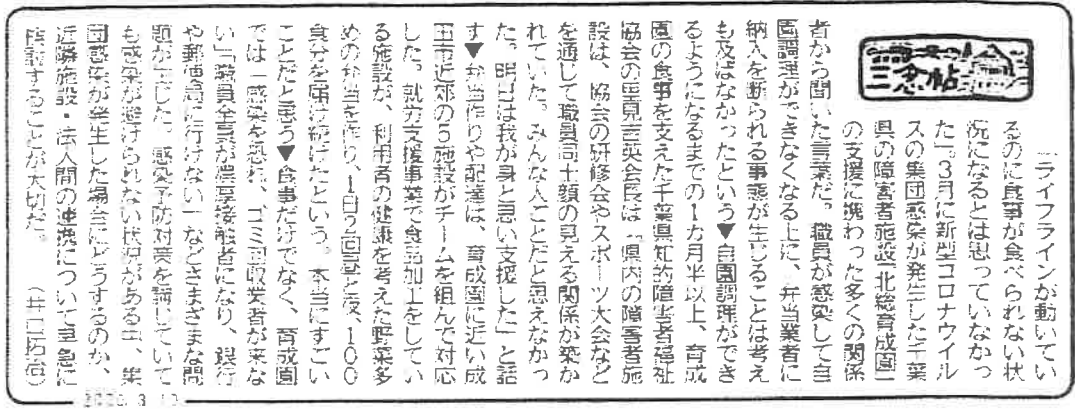 三念帖
「ライフラインが動いてい
るのに食事が食べられない状
況になるとは思っていなかっ
た」。3月に新型コロナウイル
スの集団感染が発生した千葉
県の障害者施設「北総育成園」
の支援に携わった多くの関係
者から聞いた言葉だ。職員が感染して自
園調理ができなくなる上に、弁当業者に
納入を断られる事態が生じることは考え
も及ばなかったという▼自園調理ができ
るようになるまでの1カ月半以上、育成
園の食事を支えた千葉県知的障害者福祉
協会の里見吉英会長は「県内の障害者施
設は、協会の研修会やスポーツ大会など
を通じて職員同士顔の見える関係が築か
れていた。みんな人ごとだと思えなかっ
た。明日は我が身と思い支援した」と話
す▼弁当作りや配達は、育成園に近い成
田市近郊の5施設がチームを組んで対応
した。就労支援事業で食品加工をしてい
る施設が、利用者の健康を考えた野菜多
めの弁当を作り、1日2回昼と夜、100
食分を届け続けたという。本当にすごい
ことだと思う▼食事だけでなく、育成園
では「感染を恐れ、ゴミ回収業者が来な
い」「職員全員が濃厚接触者になり、銀行
や郵便局に行けない」などさまざまな問
題が生じた。感染予防対策を講じていて
も感染が避けられない状況がある中、集
団感染が発生した場合にどうするのか、
近隣施設・法人間の連携について早急に
検討することが大切だ。
（井口拓治）